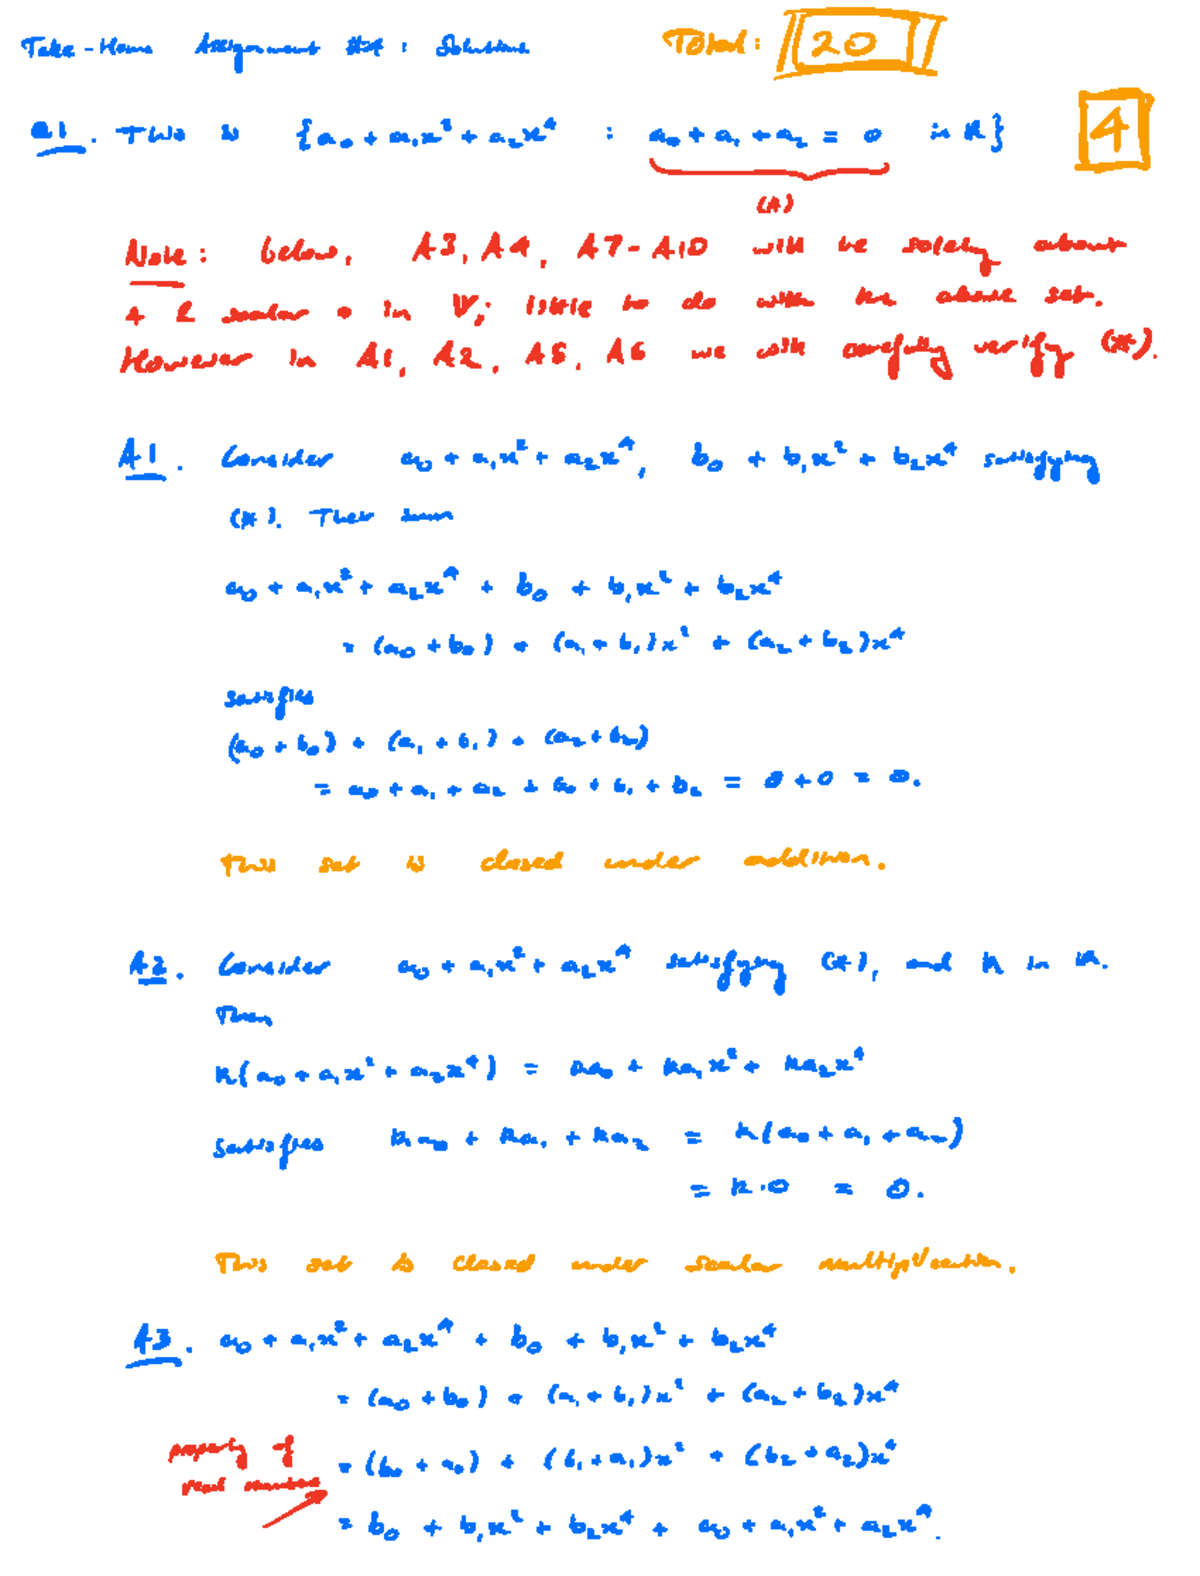 Take-Home Assignment #4 : Solutions Total: 20
Q1. This is {a₀ + a₁x² + a₂x⁴ : a₀ + a₁ + a₂ = 0 in ℝ} 4
(*)
Note: below, A3, A4, A7-A10 will be solely about
+ & scalar • in V; little to do with the above set.
However in A1, A2, A5, A6 we will carefully verify (*).
A1. Consider a₀ + a₁x² + a₂x⁴, b₀ + b₁x² + b₂x⁴ satisfying
(*). Their sum
a₀ + a₁x² + a₂x⁴ + b₀ + b₁x² + b₂x⁴
= (a₀ + b₀) + (a₁ + b₁)x² + (a₂ + b₂)x⁴
satisfies
(a₀ + b₀) + (a₁ + b₁) + (a₂ + b₂)
= a₀ + a₁ + a₂ + b₀ + b₁ + b₂ = 0 + 0 = 0.
This set is closed under addition.
A2. Consider a₀ + a₁x² + a₂x⁴ satisfying (*), and k in ℝ.
Then
k(a₀ + a₁x² + a₂x⁴) = ka₀ + ka₁x² + ka₂x⁴
satisfies ka₀ + ka₁ + ka₂ = k(a₀ + a₁ + a₂)
= k·0 = 0.
This set is closed under scalar multiplication.
A3. a₀ + a₁x² + a₂x⁴ + b₀ + b₁x² + b₂x⁴
= (a₀ + b₀) + (a₁ + b₁)x² + (a₂ + b₂)x⁴
property of
real numbers
= (b₀ + a₀) + (b₁ + a₁)x² + (b₂ + a₂)x⁴
= b₀ + b₁x² + b₂x⁴ + a₀ + a₁x² + a₂x⁴.